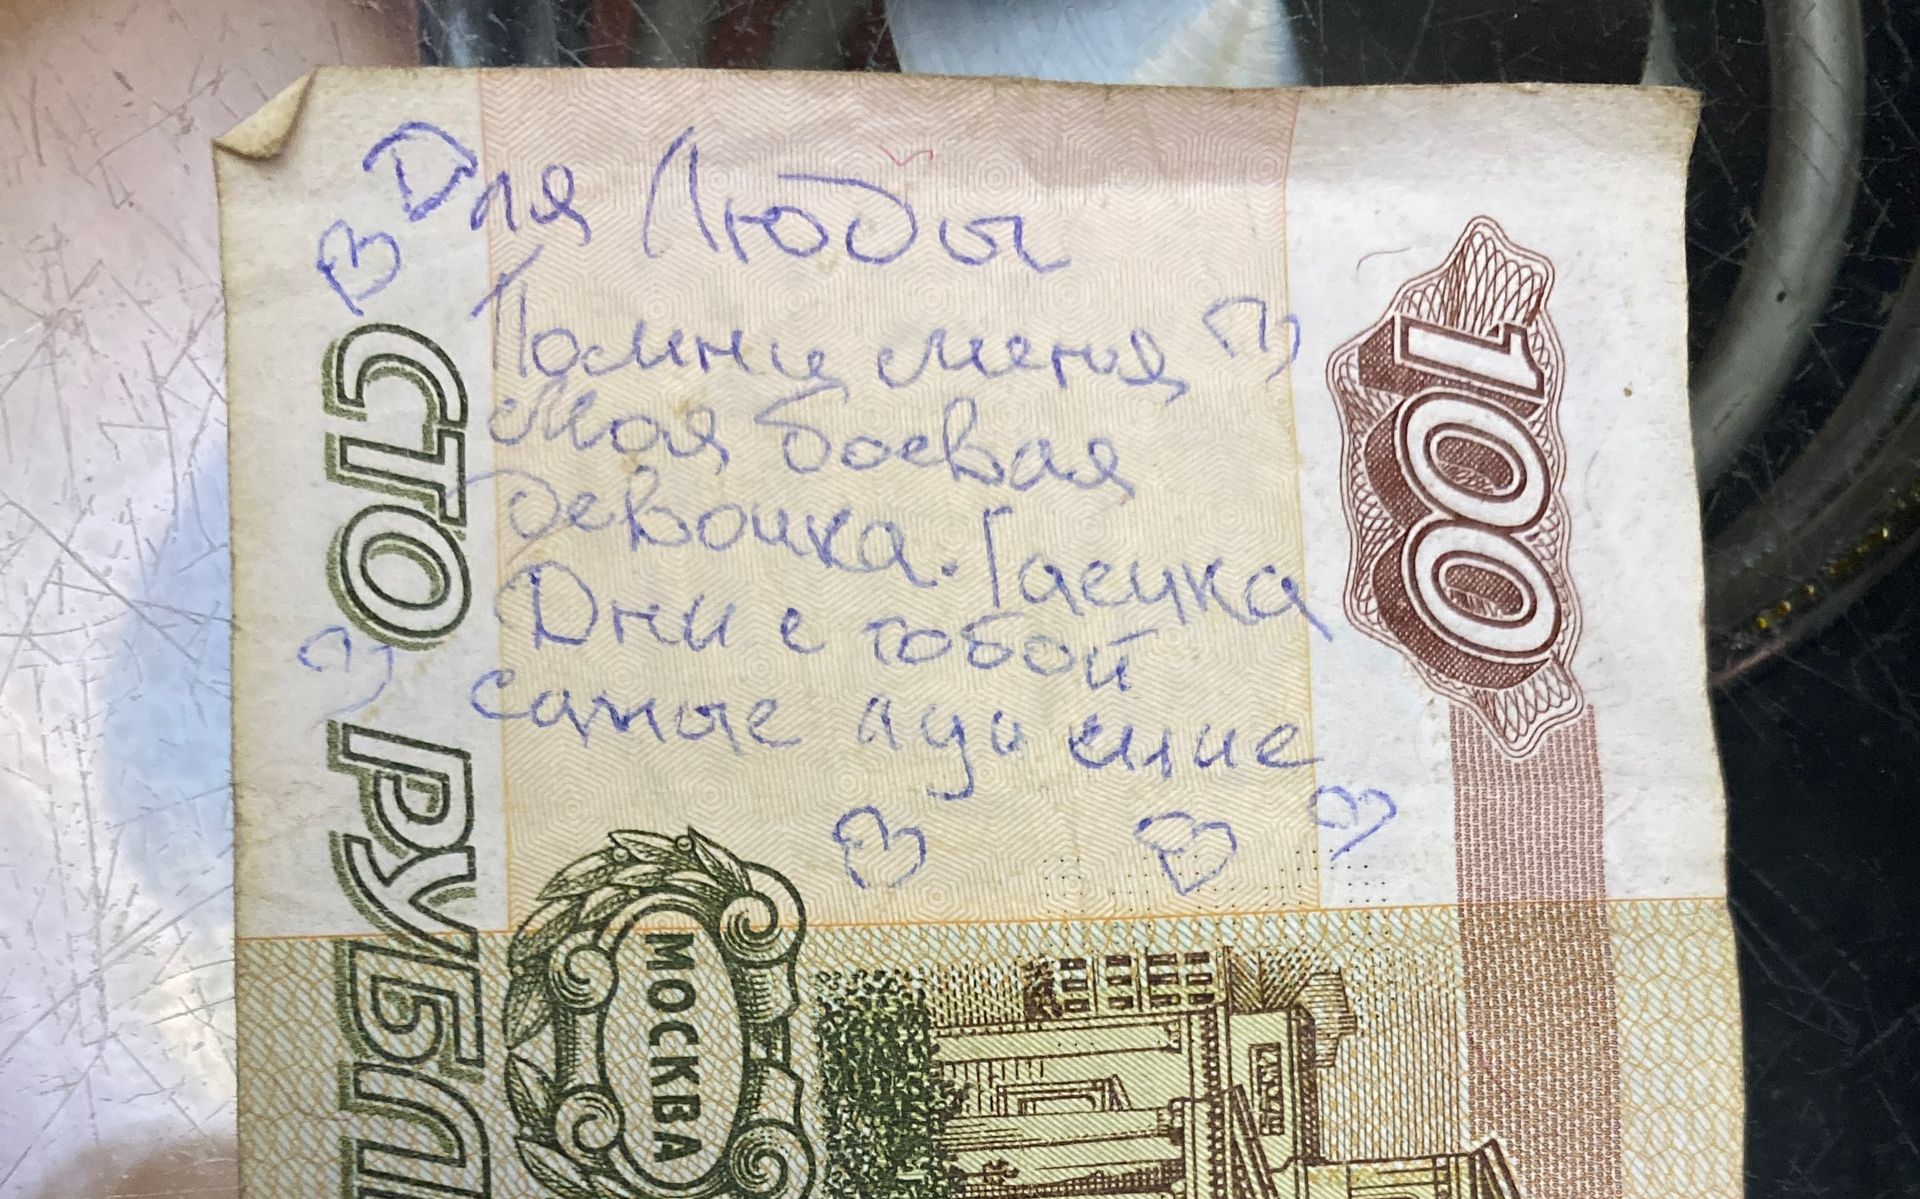 Для Любы
Помни меня
Моя боевая
девочка. Гасучка
Дни с тобой
самые лучшие
100
СТО РУБЛ
МОСКВА